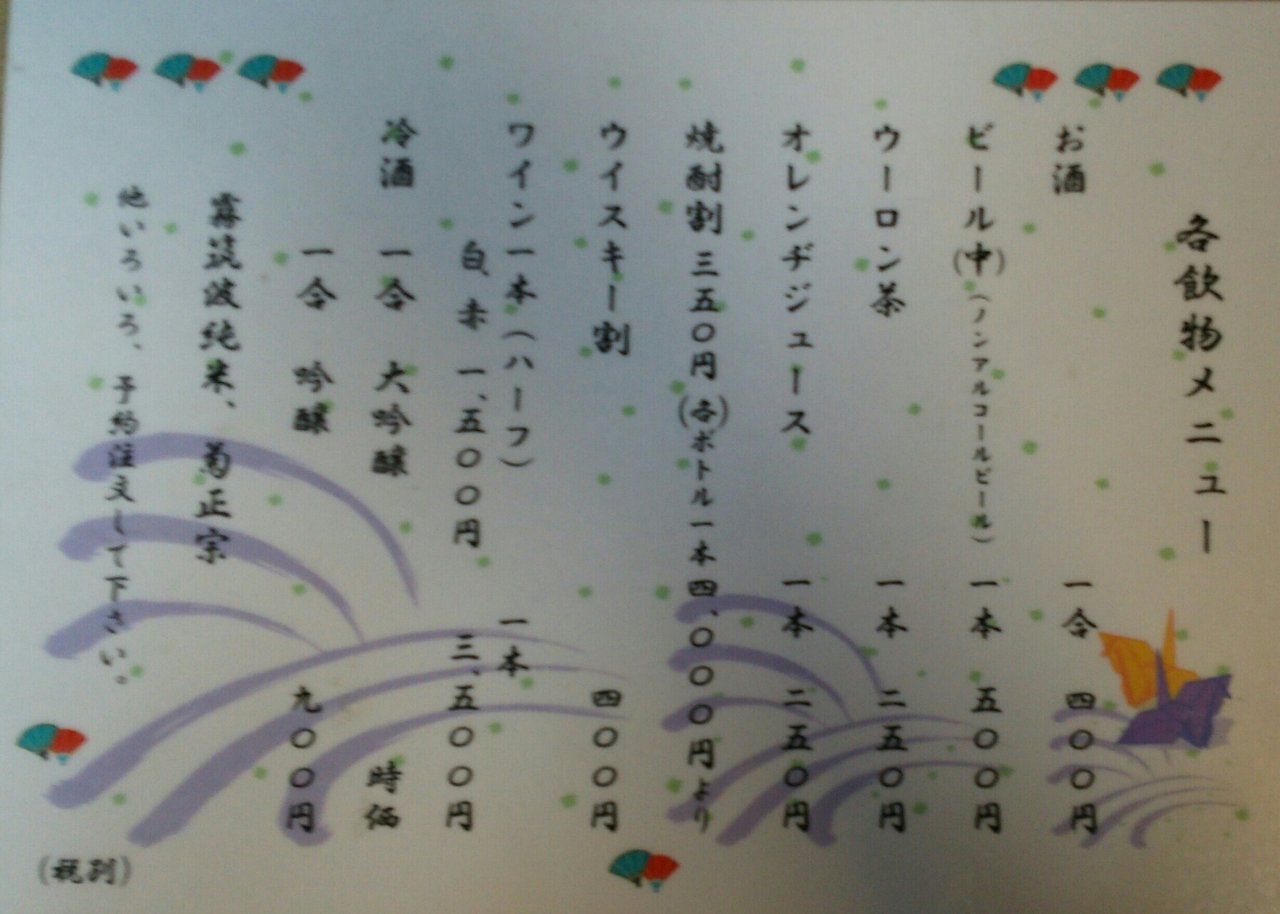 各飲物メニュー
お酒 一合 四〇〇円
ビール(中)(ノンアルコールビール) 一本 五〇〇円
ウーロン茶 一本 二五〇円
オレンヂジュース 一本 二五〇円
焼酎割 三五〇円(各)ボトル一本四、〇〇〇円より
ウイスキー割 四〇〇円
ワイン一本(ハーフ) 一本
白、赤 一、五〇〇円 三、五〇〇円
冷酒 一合 大吟醸 時価
一合 吟醸 九〇〇円
霧筑波純米、菊正宗
他いろいろ、予約注文して下さい。
(税別)